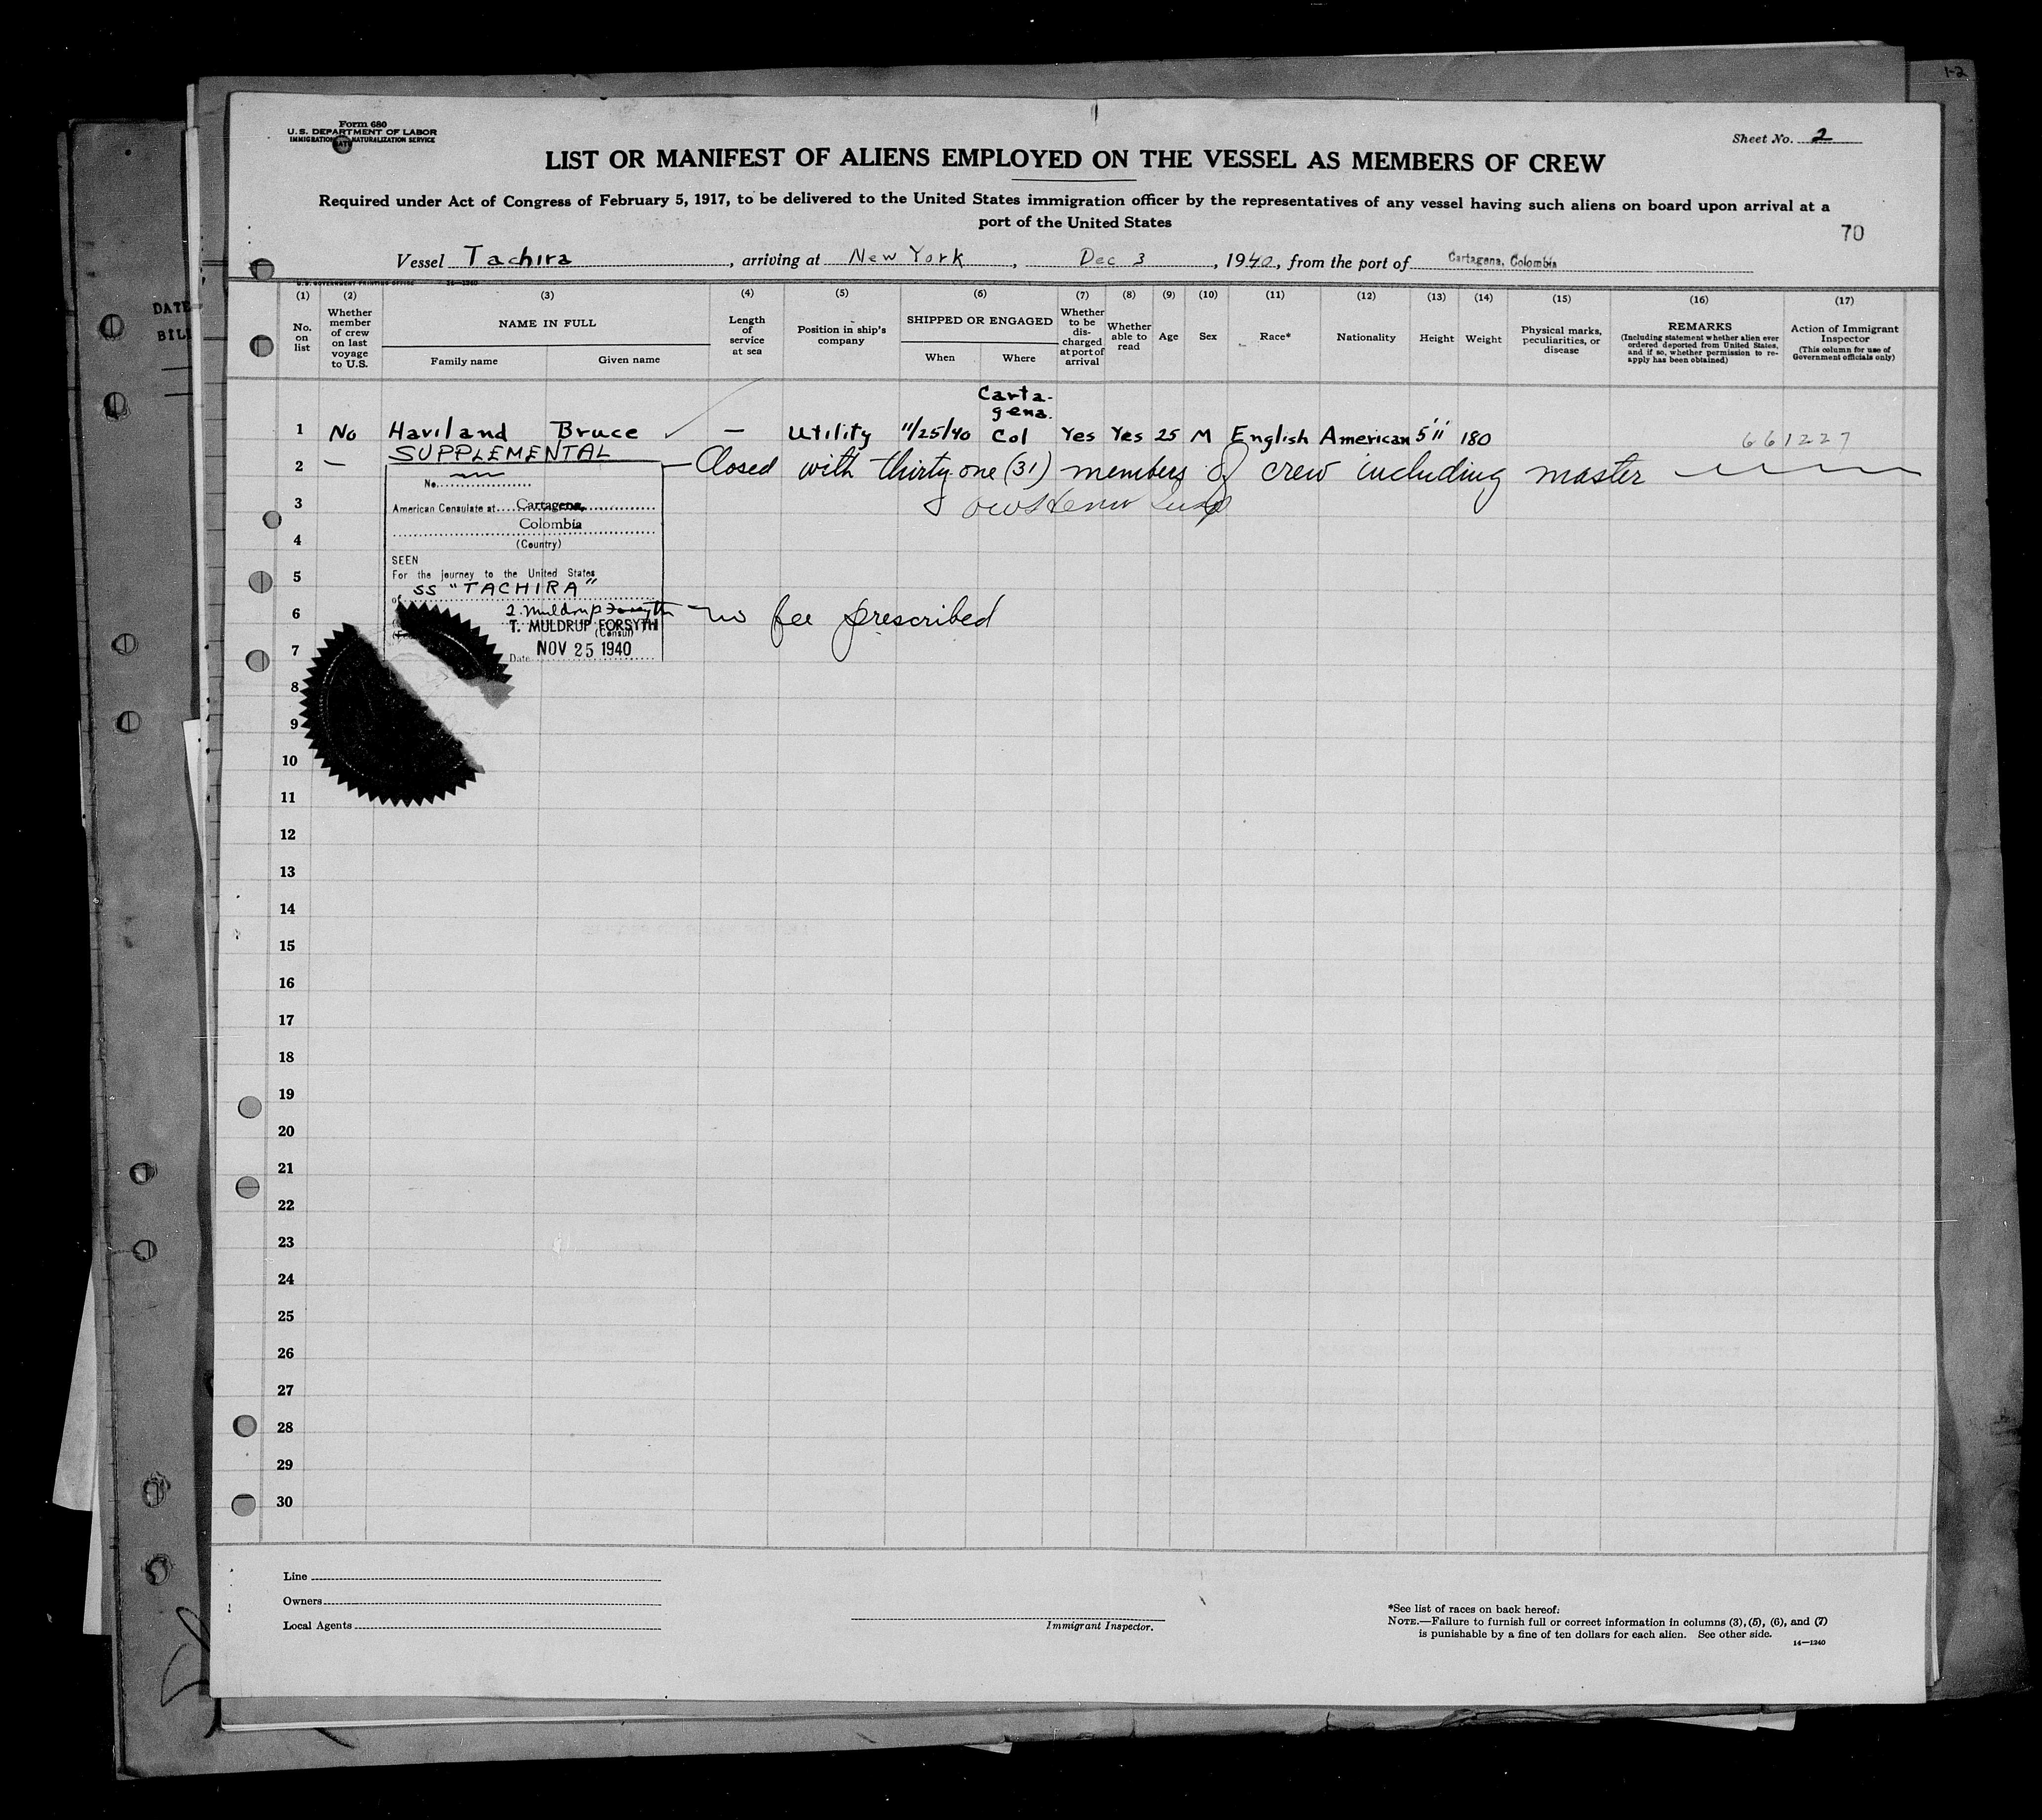 1-2
DATE
BILL
Form 680
U.S. DEPARTMENT OF LABOR
IMMIGRATION AND NATURALIZATION SERVICE
Sheet No. 2
LIST OR MANIFEST OF ALIENS EMPLOYED ON THE VESSEL AS MEMBERS OF CREW
Required under Act of Congress of February 5, 1917, to be delivered to the United States immigration officer by the representatives of any vessel having such aliens on board upon arrival at a
port of the United States
70
Vessel Tachira, arriving at New York, Dec 3, 1940, from the port of Cartagena, Colombia
U. S. GOVERNMENT PRINTING OFFICE 14—1240
(1) (2) (3) (4) (5) (6) (7) (8) (9) (10) (11) (12) (13) (14) (15) (16) (17)
No. on list
Whether member of crew on last voyage to U.S.
NAME IN FULL
Family name Given name
Length of service at sea
Position in ship's company
SHIPPED OR ENGAGED
When Where
Whether to be discharged at port of arrival
Whether able to read
Age
Sex
Race*
Nationality
Height
Weight
Physical marks, peculiarities, or disease
REMARKS
(Including statement whether alien ever ordered deported from United States, and if so, whether permission to re-apply has been obtained)
Action of Immigrant Inspector
(This column for use of Government officials only)
Carta-
gena.
1 No Haviland Bruce ✓ — Utility 11/25/40 Col Yes Yes 25 M English American 5'11" 180 661227
SUPPLEMENTAL
2 — Closed with thirty one (31) members of crew including master
No.
3 American Consulate at Cartagena,
Colombia
4 (Country)
SEEN
5 For the journey to the United States
of SS "TACHIRA"
6 T. Muldrup Forsyth — no fee prescribed
T. MULDRUP FORSYTH
(Consul)
7 Date NOV 25 1940
8
9
10
11
12
13
14
15
16
17
18
19
20
21
22
23
24
25
26
27
28
29
30
Line
Owners
Local Agents
Immigrant Inspector.
*See list of races on back hereof.
NOTE.—Failure to furnish full or correct information in columns (3), (5), (6), and (7)
is punishable by a fine of ten dollars for each alien. See other side.
14—1240